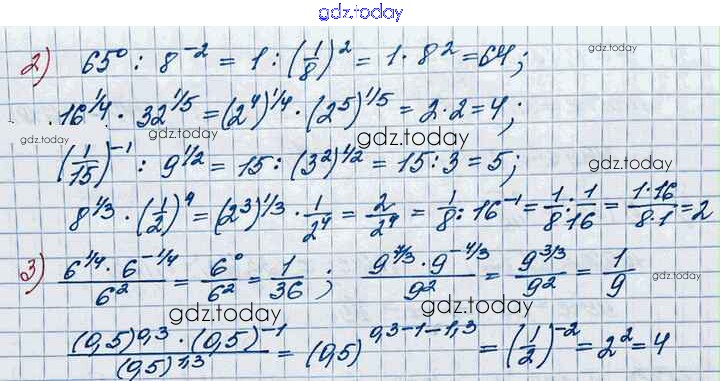 gdz.today
2) 65⁰ : 8⁻² = 1 : (1/8)² = 1 · 8² = 64; gdz.today
16^(1/4) · 32^(1/5) = (2⁴)^(1/4) · (2⁵)^(1/5) = 2 · 2 = 4;
gdz.today gdz.today
(1/15)⁻¹ : 9^(1/2) = 15 : (3²)^(1/2) = 15 : 3 = 5; gdz.today
8^(1/3) · (1/2)⁴ = (2³)^(1/3) · 1/2⁴ = 2/2⁴ = 1/8 : 16⁻¹ = 1/8 : 1/16 = (1·16)/(8·1) = 2
3) (6^(1/4) · 6^(-1/4))/6² = 6⁰/6² = 1/36; (9^(7/3) · 9^(-4/3))/9² = 9^(3/3)/9² = 1/9 gdz.today
gdz.today gdz.today
((0,5)^(0,3) · (0,5)⁻¹)/(0,5)^(1,3) = (0,5)^(0,3-1-1,3) = (1/2)⁻² = 2² = 4
gdz.today